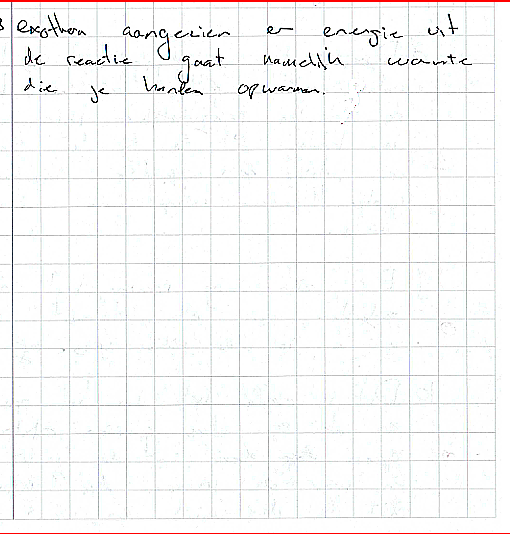 exotherm aangezien er energie uit
de reactie gaat namelijk warmte
die je handen opwarmen.